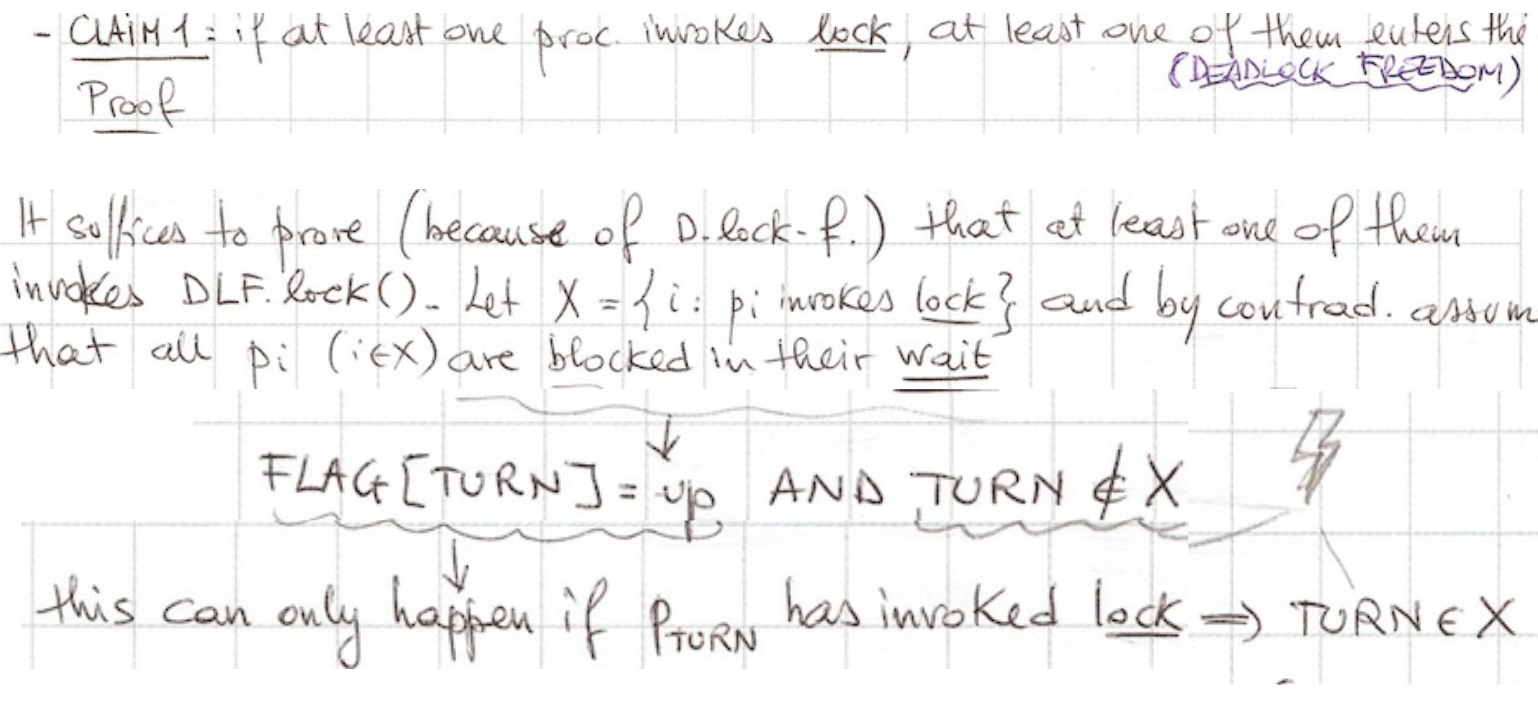 - CLAIM 1: if at least one proc. invokes lock, at least one of them enters the
(DEADLOCK FREEDOM)
Proof
It suffices to prove (because of D.lock-f.) that at least one of them
invokes DLF.lock(). Let X = {i: pi invokes lock} and by contrad. assum
that all pi (i∈X) are blocked in their wait
↓
FLAG[TURN] = up AND TURN ∉ X
↓
this can only happen if pTURN has invoked lock ⇒ TURN ∈ X